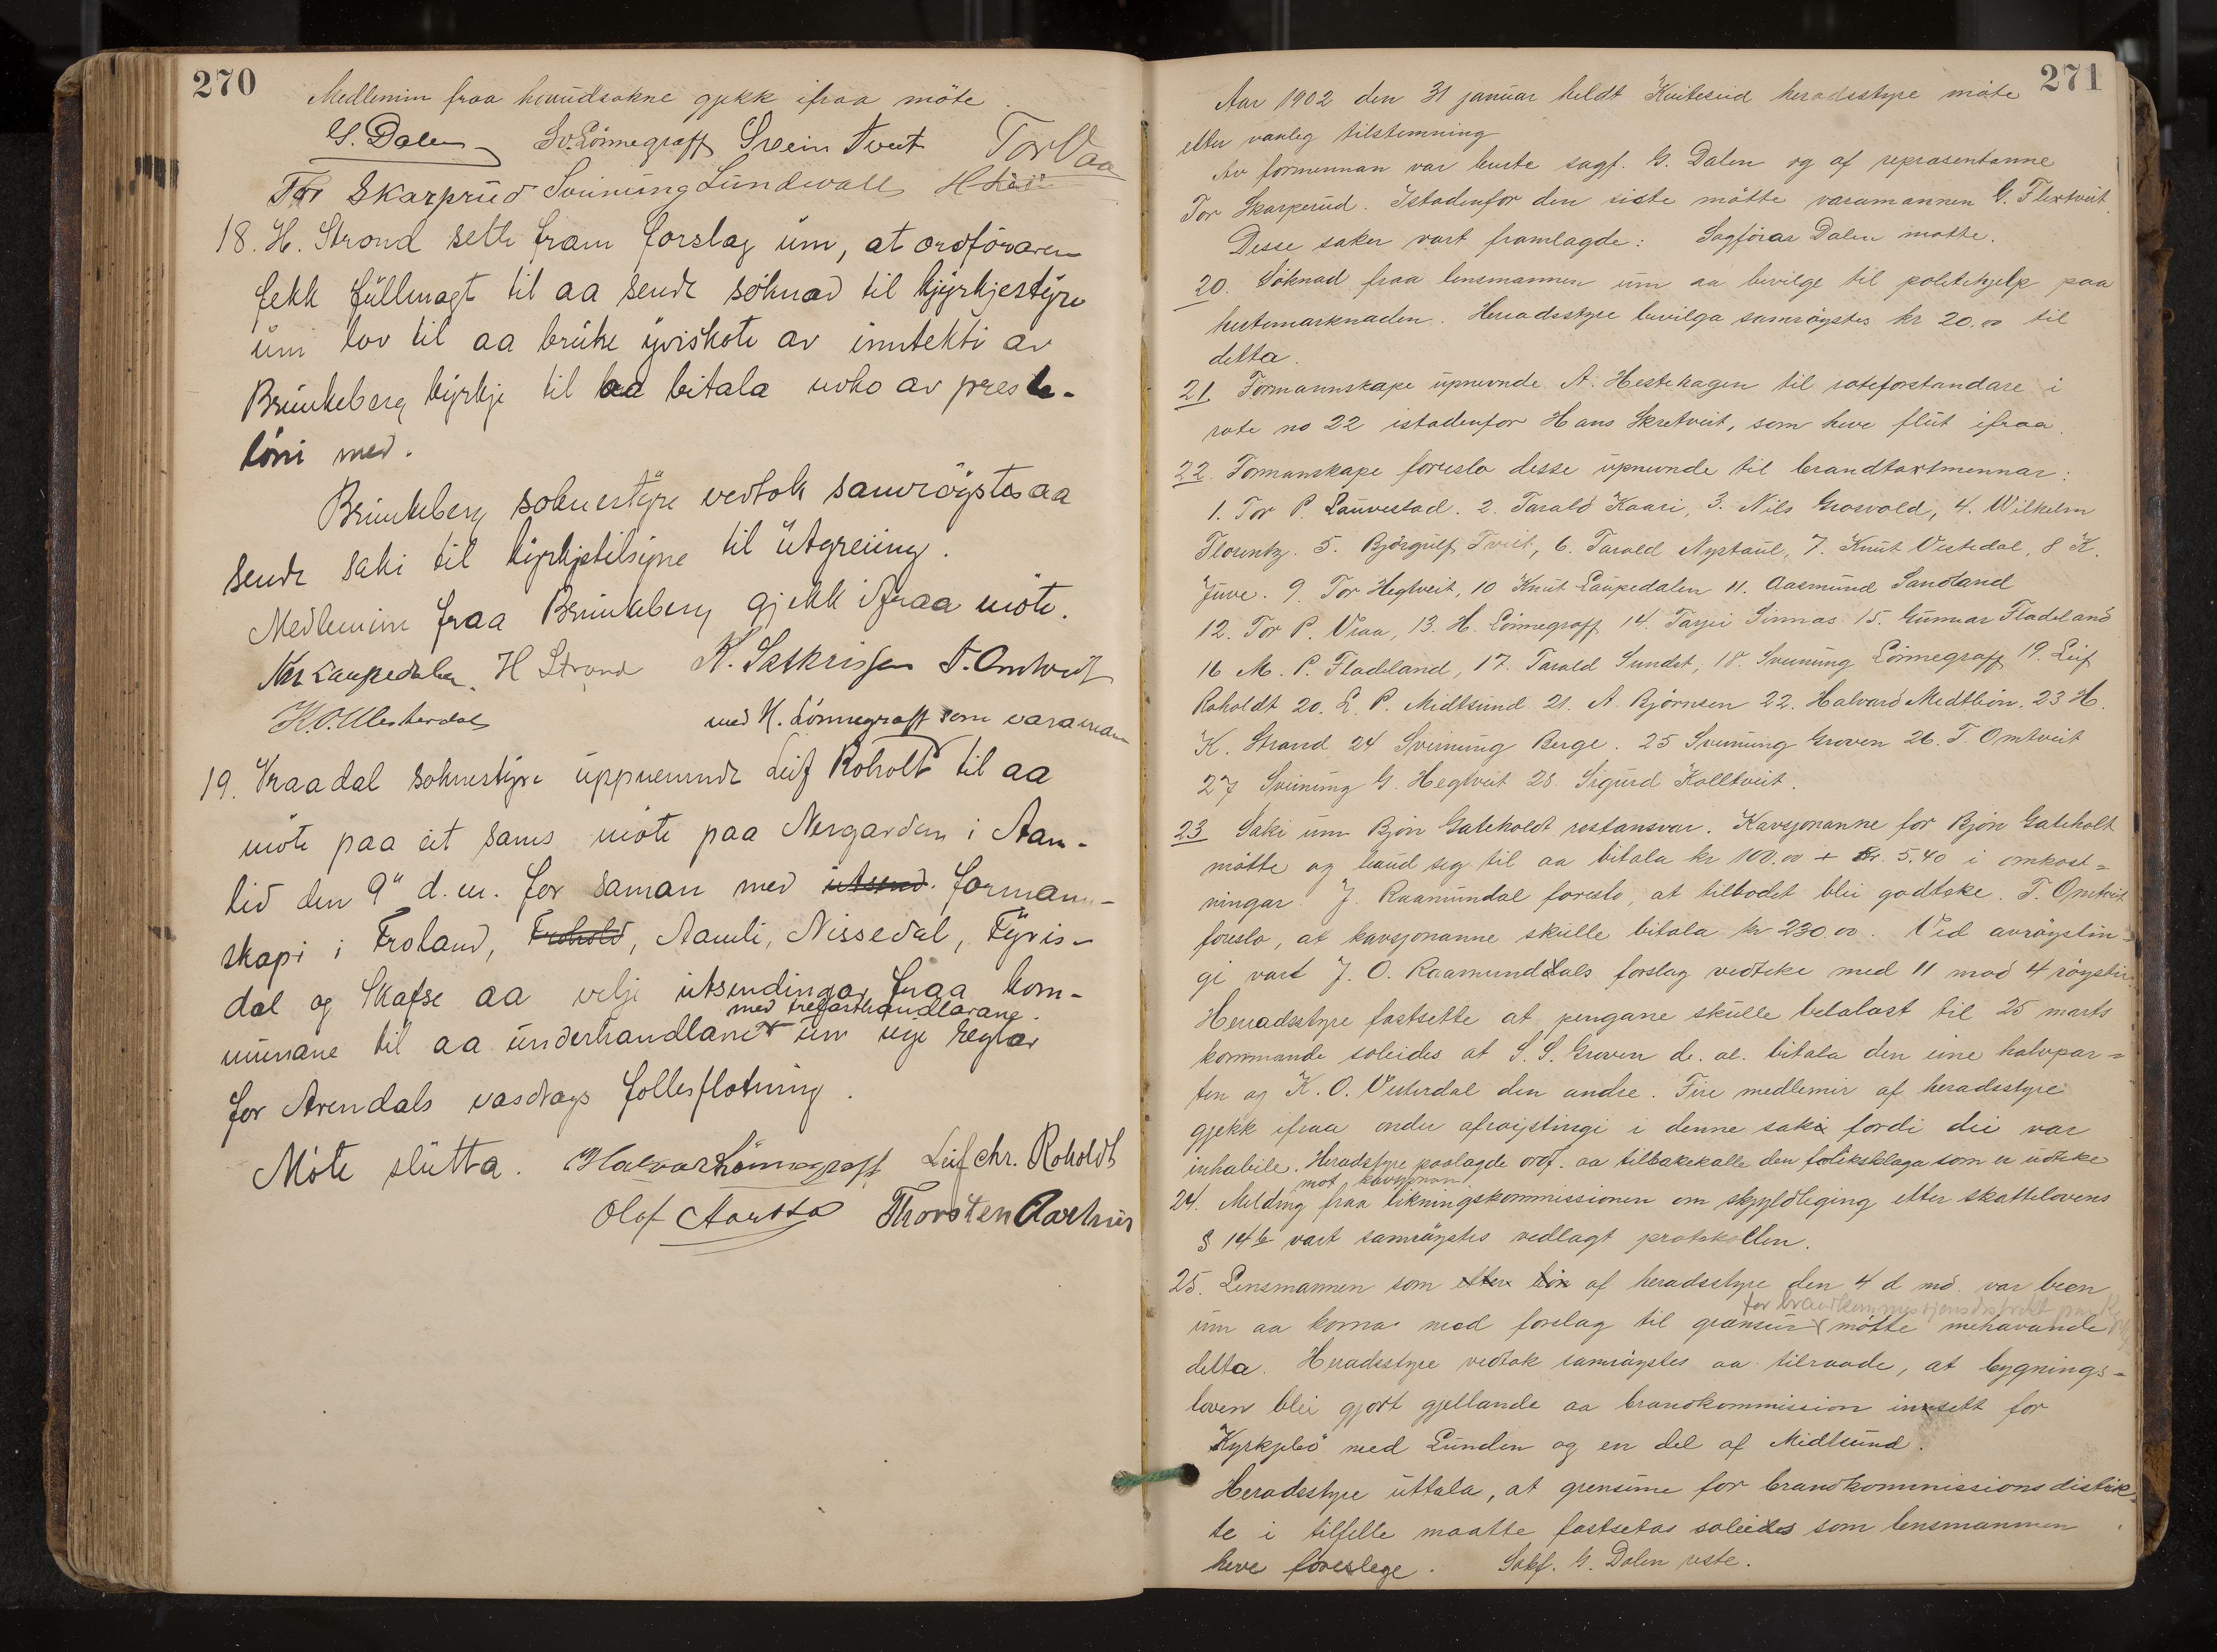 270
Medlemin fraa hovudsokne gjekk ifraa möte.
G. Dalen Sv. Lönnegraff Svein Tveit Tor Vaa
Tor Skarprud Sveinung Lundevall
18. H. Strond sette fram forslag um, at ordföraren
fekk fullmagt til aa sende söknad til kjyrkjestyre
um lov til aa bruke yviskote av inntekti av
Brunkeberg kyrkje til aa bitala noko av preste-
löni med.
Brunkeberg soknestyre vedtok samröystes aa
sende saki til kyrkjetilsyne til utgreiing.
Medlemine fraa Brunkeberg gjekk ifraa möte.
Kn Laupedalen. H Strond K. Saskrissen T. Omtveit
K. O. Vlesterdal med H. Lönnegraff som varamann
19. Vraadal soknestyre uppnemnde Leif Roholt til aa
möte paa eit sams möte paa Nergarden i Aam-
lid den 9" d. m. for saman med utsend. formann-
skapi i Froland, Frohold, Aamli, Nissedal, Fyris-
dal og Skafse aa velji utsendingar fraa kom-
med trelasthandlarane.
munane til aa underhandlan um nye reglar
for Arendals vasdrags follesflotning.
Möte slutta. Halvor Lönnegraff Leif Chr. Roholdt
Olof Aartta Thorsten Aarhus
271
Aar 1902 den 31 januar heldt Kviteseid heradsstyre möte
etter vanleg tilstemning
Av formennan var burte sagf. G. Dalen og af representanne
Tor Skarperud. Istadenfor den siste mötte varamannen G. Flextveit.
Desse saker vart framlagde: Sagförar Dalen motte.
20. Söknad fraa lensmannen um aa bevilge til politihjelp paa
hestemarknaden. Heradsstyre bevilga samröystes kr 20.00 til
detta.
21. Formannskape upnevnde A. Hestehagen til roteforstandare i
rote no 22 istadenfor Hans Skretveit, som heve flut ifraa.
22. Formanskape foreslo desse upnevnde til brandtaxtmennar:
1. Tor P. Lauvestad. 2. Tarald Kaasi, 3. Nils Grosvold, 4. Wilhelm
Florentz. 5. Björgulf Tveit, 6. Tarald Nystaul, 7. Knut Vestedal, 8 K.
Juve. 9. Tor Hegtveit, 10 Knut Laupedalen 11. Aasmund Sandland
12. Tor P. Vraa, 13. H. Lönnegraff 14. Tarjei Sinnas 15. Gunnar Fladeland
16 M. P. Fladeland, 17. Tarald Sundet, 18. Sveinung Lönnegraff 19. Leif
Roholdt 20. L. P. Midtsund 21. A. Björnsen 22. Halvard Medtbön. 23 H.
K. Strand 24 Sveinung Berge. 25 Sveinung Groven 26. T. Omtveit
27 Sveinung G. Hegtveit 28. Sigurd Kolltveit.
23 Saki um Bjön Gateholdt restansvar. Kavsjonanne for Bjön Gateholt
mötte og baud seg til aa bitala kr 100.00 + kr. 5.40 i omkost=
ningar. J. Raamundal foreslo, at tilbodet blei godteke. T. Omtveit
foreslo, at kavsjonanne skulle bitala kr 230.00. Ved avröystin=
gi vart J. O. Raamunddals forslag vedteke med 11 mod 4 röystir.
Heradsstyre fastsette at pengane skulle betalast til 25 marts
kommande soleides at S. S. Groven d. æ. bitala den eine halvpar=
ten og K. O. Vesterdal den andre. Fire medlemir af heradsstyre
gjekk ifraa under afröystingi i denne saki fordi dei var
inhabile. Heradstyre paalagde ordf. aa tilbakekalle den foliksklaga som er uteke
mot kavsjonan
24. Melding fraa likningskommissionen om skyyldleging etter skattelovens
§ 14 b vart samröystes vedlagt protokollen.
25. Lensmannen som etter bön af heradsstyre den 4 d md. var been
for brandkommissjonsdistrikt
um aa koma med forslag til grænsur mötte mehavande
detta. Heradsstyre vedtok samröystes aa tilraade, at bygnings-
loven blei gjort gjellande aa brandkommission innsett for
Kyrkjebö med Lunden og en del af Midtsund.
Heradsstyre uttala, at grensune for brandkommissionsdistrik-
te i tilfelle maatte fastsetas soleides som lensmannen
heve foreslege. Sakf. G. Dalen reste.